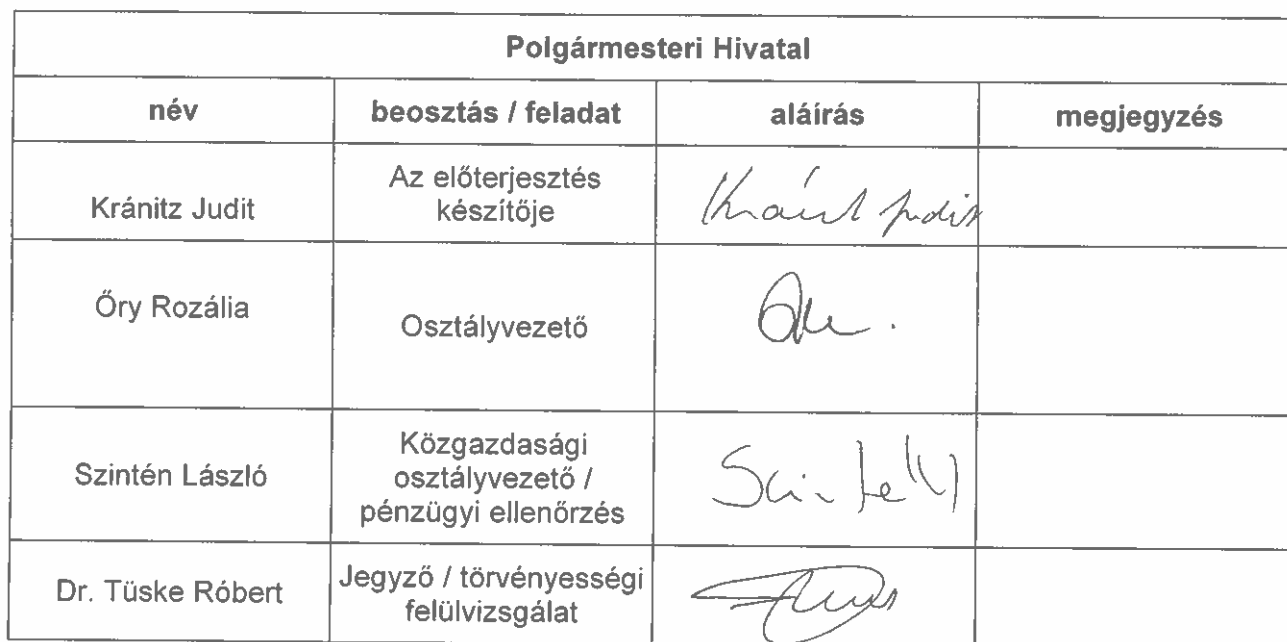 Polgármesteri Hivatal
név beosztás / feladat aláírás megjegyzés
Kránitz Judit
Az előterjesztés
készítője
Kránitz Judit
Őry Rozália
Osztályvezető
Szintén László
Közgazdasági
osztályvezető /
pénzügyi ellenőrzés
Dr. Tüske Róbert
Jegyző / törvényességi
felülvizsgálat